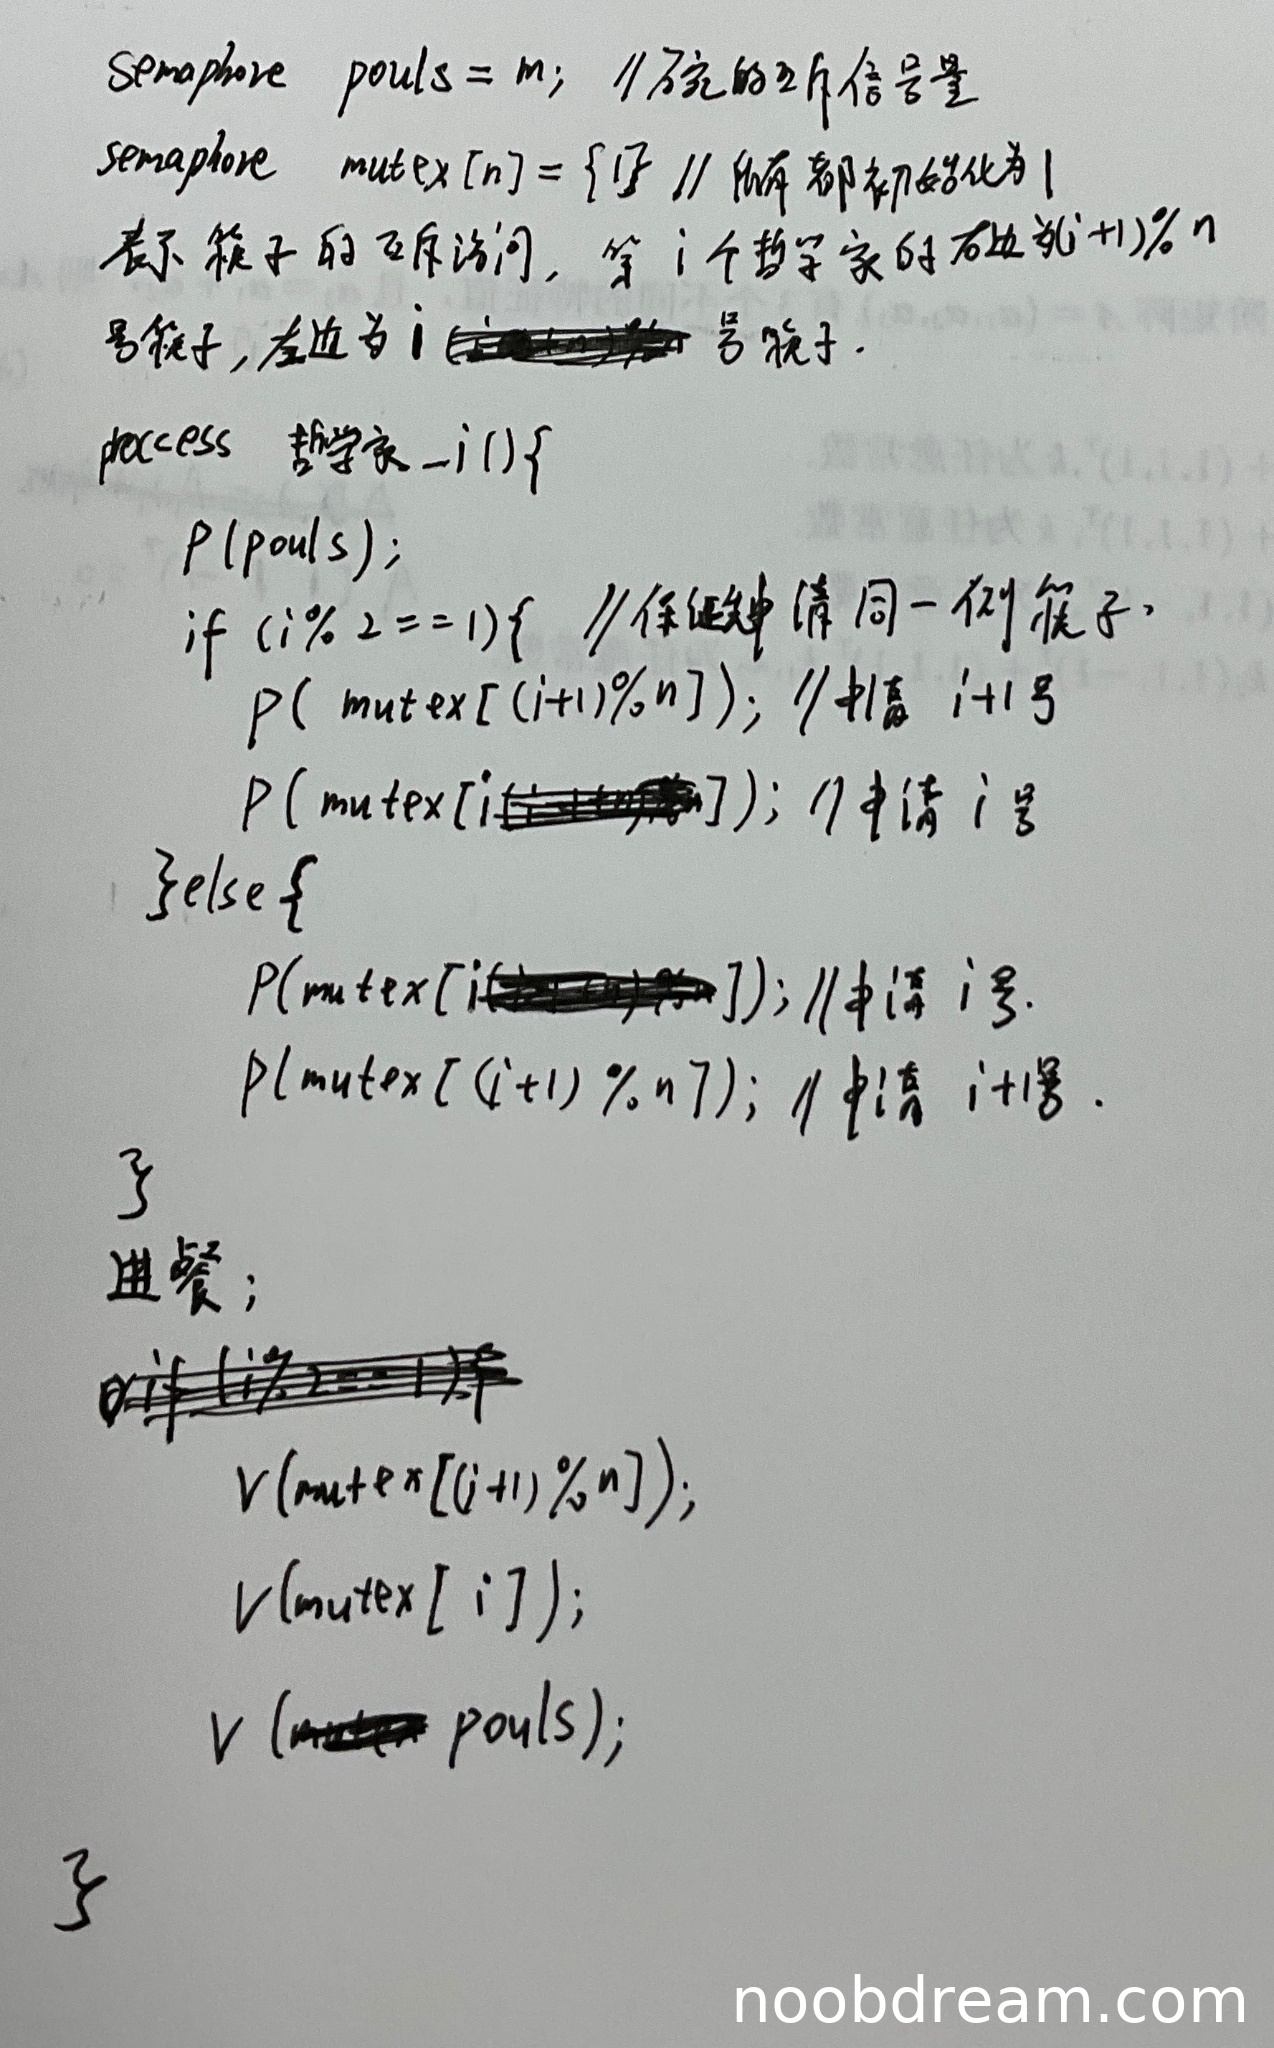 semaphore pouls = m; //碗的互斥信号量
semaphore mutex[n] = {1} //所有都初始化为1
表示筷子的互斥访问, 第i个哲学家的右边为(i+1)%n
号筷子,左边为i号筷子.
process 哲学家_i(){
P(pouls);
if (i%2==1){ //保证先申请同一侧筷子.
P( mutex[(i+1)%n]); //申请 i+1号
P(mutex[i]); //申请 i号
}else{
P(mutex[i]); //申请 i号.
P(mutex[(i+1)%n]); //申请 i+1号.
}
进餐;
V(mutex[(i+1)%n]);
V(mutex[i]);
V(pouls);
}
noobdream.com